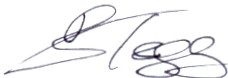 S Tegg